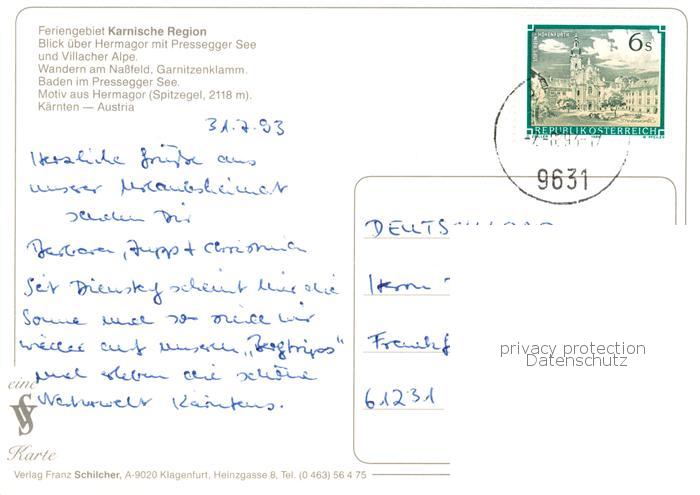 Feriengebiet Karnische Region
Blick über Hermagor mit Pressegger See
und Villacher Alpe.
Wandern am Naßfeld, Garnitzenklamm.
Baden im Pressegger See.
Motiv aus Hermagor (Spitzegel, 2118 m).
Kärnten — Austria
6 s
REPUBLIK ÖSTERREICH
9631
31.7.93
Herzliche Grüße aus
unserer Urlaubsheimat
senden Dir
Barbara, Jupp + Christina
Seit Dienstag scheint hier die
Sonne und so sind wir
wieder auf unseren „Bergtripps"
und erleben die schöne
Naturwelt Kärntens.
DEUTSCHLAND
Herrn
Frankf
61231
privacy protection
Datenschutz
eine
VS
Karte
Verlag Franz Schilcher, A-9020 Klagenfurt, Heinzgasse 8, Tel. (0 463) 56 4 75